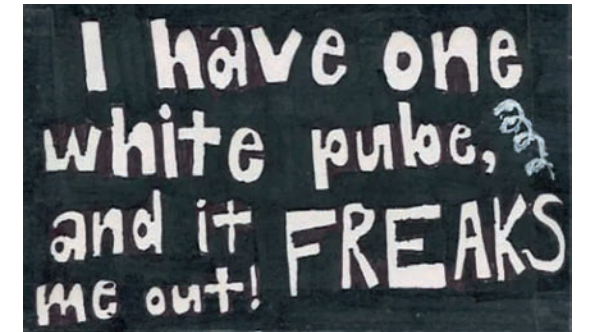 I have one
white pube,
and it FREAKS
me out!